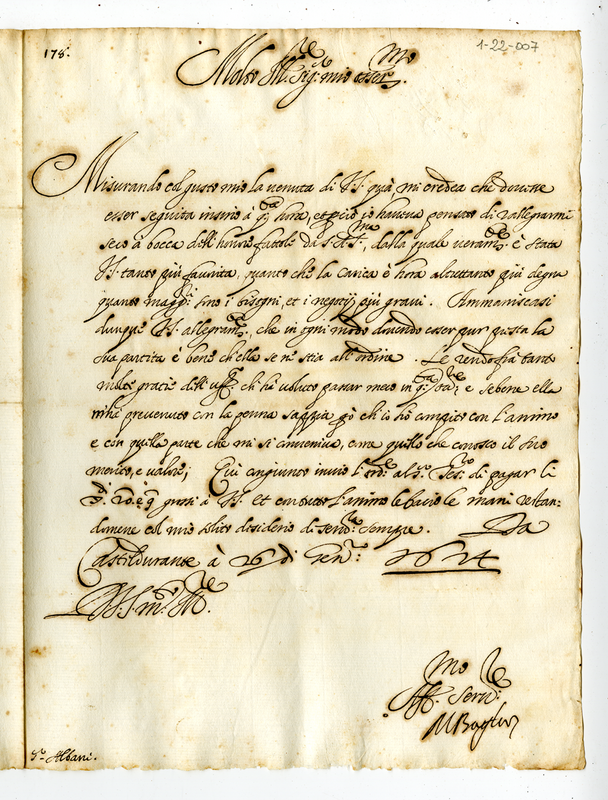 178.
1-22-007
Molto Ill.re Sig.r mio osser.mo
Misurando col gusto mio la venuta di V.S. quà mi credea che dovesse
esser seguita insino à q.ta hora, et perciò io haveva pensato di rallegrarmi
seco à bocca dell'honore fattole da S.A.S.ma, dalla quale veram.te è stata
V.S. tanto più favorita, quanto che la carica è hora altrettanto più degna
quanto maggi.ri sono i bisogni, et i negotij più gravi.
dunque V.S. allegram.te, che in ogni modo dovendo esser pur questa la
sua partita è bene ch'ella se ne stia all'ordine. Le rendo frà tanto
molte gratie dell'uff.o ch'hà voluto passar meco in q.ta e sebene ella
m'hà prevenuto con la penna sappia però ch'io hò compito con l'animo
e con quella parte che mi si conveniva, come quello che conosco il suo
merito, e valore; Quì congiunto invio l'ord.e al S.r Tes.ro di pagar li
20. e 9 grossi à V.S. et con tutto l'animo le bacio le mani restan-
domene col mio solito desiderio di servirla sempre. Da
Casteldurante à 26 di Gen.: 1624
D. V.S. m.to Ill.re
Aff.mo Serv.re
S.r Albani.